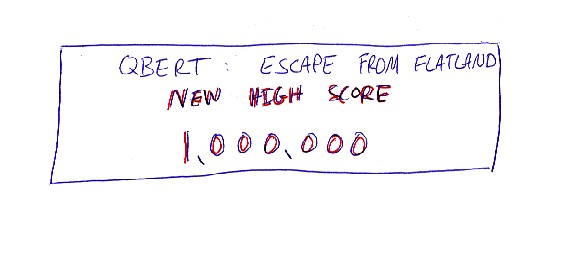 QBERT: ESCAPE FROM FLATLAND
NEW HIGH SCORE
1,000,000